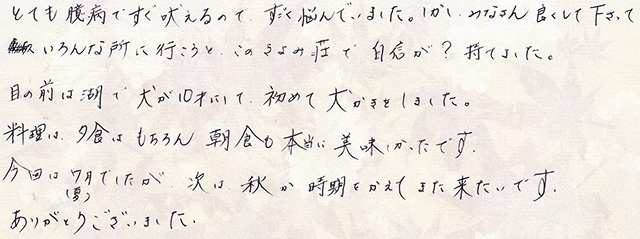 とても臆病ですぐ吠えるので、すごく悩んでいました。しかし、みなさん良くして下さって
いろんな所に行こうと、このきよみ荘で自信が？持てました。
目の前は湖で犬が10才にして、初めて犬かきをしました。
料理は、夕食はもちろん朝食も本当に美味しかったです。
今回は7月でしたが、次は、秋か時期をかえてまた来たいです。
(夏)
ありがとうございました。